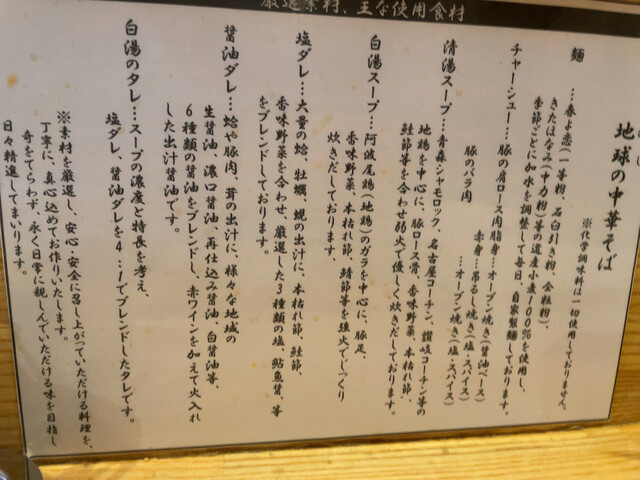 厳選素材、主な使用食材
地球の中華そば
※化学調味料は一切使用しておりません。
麺…春よ恋(一等粉、石臼引き粉、全粒粉)、
きたほなみ(中力粉)等の道産小麦100%を使用し、
季節ごとに加水を調整して毎日、自家製麺しております。
チャーシュー…豚の肩ロース肉脂身…オーブン焼き(醤油ベース)
赤身…吊るし焼き(塩・スパイス)
豚のバラ肉…オーブン焼き(塩・スパイス)
清湯スープ…青森シャモロック、名古屋コーチン、讃岐コーチン等の
地鶏を中心に、豚ロース骨、香味野菜、本枯れ節、
鮭節等を合わせ弱火で優しく炊きだしております。
白湯スープ…阿波尾鶏(地鶏)のガラを中心に、豚足、
香味野菜、本枯れ節、鯖節等を強火でじっくり
炊きだしております。
塩ダレ…大量の蛤、牡蠣、蜆の出汁に、本枯れ節、鮭節、
香味野菜を合わせ、厳選した3種類の塩、鮎魚醤、等
をブレンドしております。
醤油ダレ…蛤や豚肉、茸の出汁に、様々な地域の
生醤油、濃口醤油、再仕込み醤油、白醤油等、
6種類の醤油をブレンドし、赤ワインを加えて火入れ
した出汁醤油です。
白湯のタレ…スープの濃度と特長を考え、
塩ダレ、醤油ダレを4:1でブレンドしたタレです。
※素材を厳選し、安心・安全に召し上がっていただける料理を、
丁寧に、真心込めてお作りいたします。
奇をてらわず、永く日常に親しんでいただける味を目指し
日々精進してまいります。